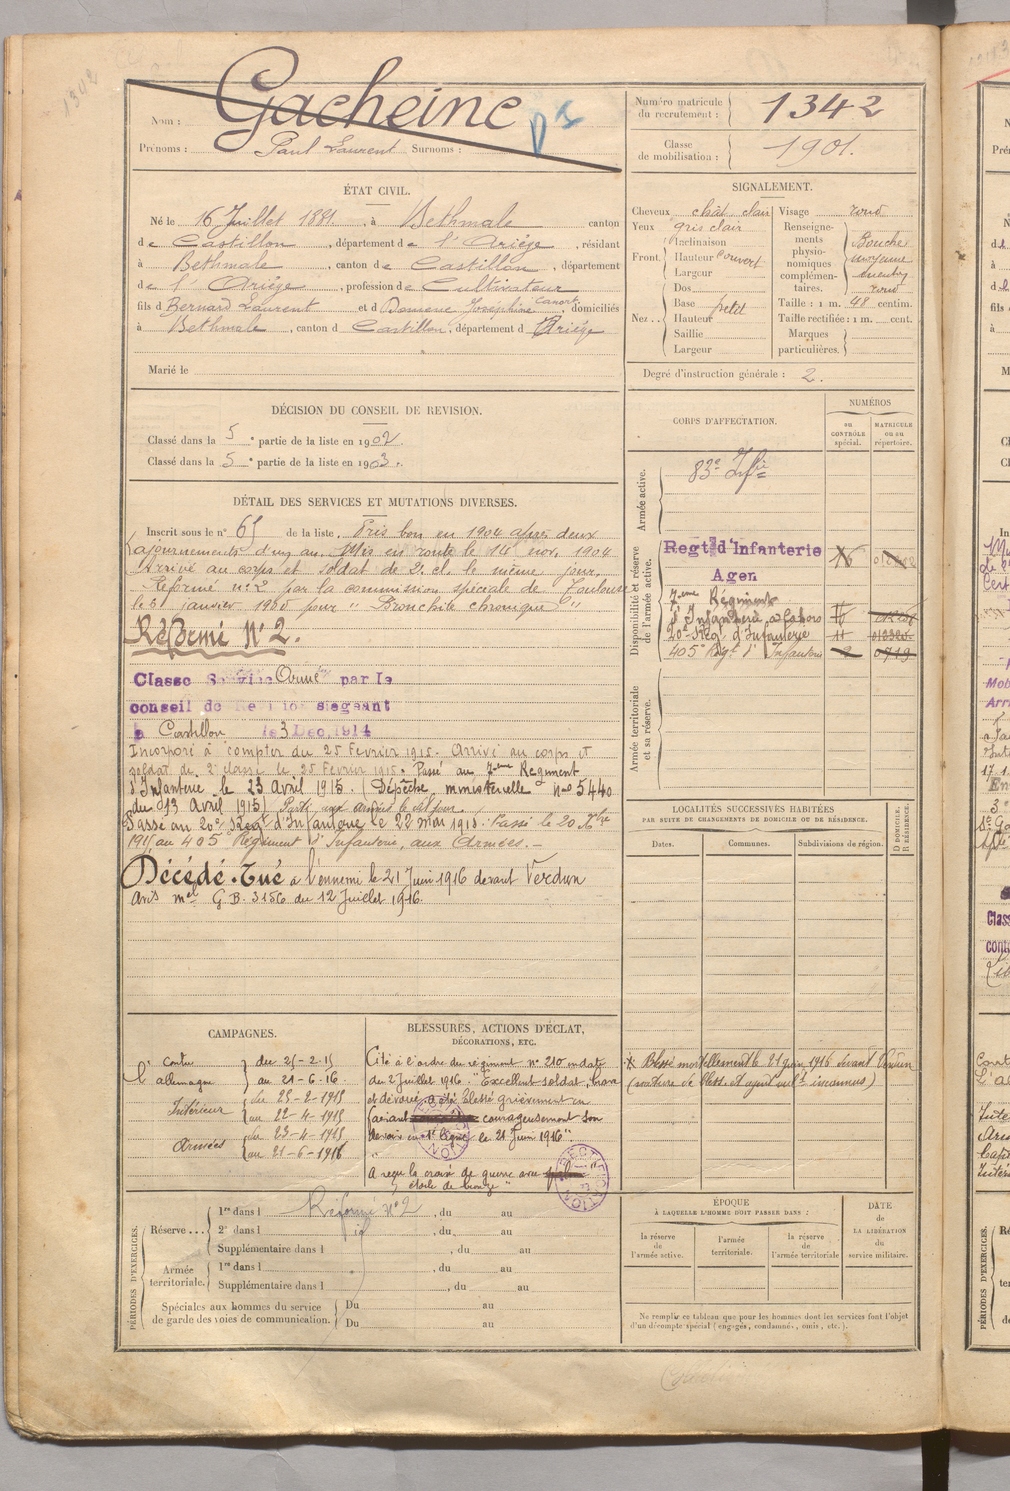 Nom : Gacheine
Prénoms : Paul Laurent Surnoms :
Numéro matricule du recrutement : 1342
Classe de mobilisation : 1901.
ÉTAT CIVIL.
Né le 16 Juillet 1881, à Bethmale canton
de Castillon, département de l'Ariège, résidant
à Bethmale, canton de Castillon, département
de l'Ariège, profession de Cultivateur
fils d Bernard Laurent et d Domenc Joséphine domiciliés
à Bethmale, canton d Castillon, département d Ariège
Marié le
SIGNALEMENT.
Cheveux chât. clair Visage rond
Yeux gris clair
Front. Inclinaison
Hauteur couvert
Largeur
Nez. Dos
Base petit
Hauteur
Saillie
Largeur
Renseignements physionomiques complémentaires. Bouche moyenne menton rond
Taille : 1 m. 48 centim.
Taille rectifiée : 1 m. cent.
Marques particulières.
Degré d'instruction générale : 2.
DÉCISION DU CONSEIL DE REVISION.
Classé dans la 5e partie de la liste en 1902.
Classé dans la 5e partie de la liste en 1903.
CORPS D'AFFECTATION.
NUMÉROS
au CONTRÔLE spécial.
MATRICULE ou au répertoire.
Armée active.
83e Infie
Disponibilité et réserve de l'armée active.
Regt d'Infanterie
Agen
7eme Régiment
d'Infanterie à Cahors
20e Rég. d'Infanterie
405e Régt d'Infanterie 2 0719
Armée territoriale et sa réserve.
DÉTAIL DES SERVICES ET MUTATIONS DIVERSES.
Inscrit sous le n° 65 de la liste. Pris bon en 1904 après deux
ajournements d'un an. Mis en route le 14 nov. 1904
Arrivé au corps et soldat de 2e cl. le même jour.
Réformé n° 2 par la commission spéciale de Toulouse
le janvier pour "Bronchite chronique"
Réformé N° 2.
Classé Service Armé par le
conseil de Revision siégeant
à Castillon le 3 Dec. 1914
Incorporé à compter du 25 Février 1915. Arrivé au corps et
soldat de 2e classe le 25 Février 1915. Passé au 7eme Régiment
d'Infanterie le 23 Avril 1915. (Dépêche ministérielle n° 5440
du 13 Avril 1915) Parti aux armées le dit jour.
Passé au 20e Regt d'Infanterie le 22 mai 1915. Passé le 20 Xbre
1915 au 405e Régiment d'Infanterie, aux Armées. –
Décédé. Tué à l'ennemi le 21 Juin 1916 devant Verdun
avis mel G.B. 3156 du 12 Juillet 1916.
LOCALITÉS SUCCESSIVES HABITÉES
PAR SUITE DE CHANGEMENTS DE DOMICILE OU DE RÉSIDENCE.
Dates. Communes. Subdivisions de région.
D DOMICILE. R RÉSIDENCE.
* Blessé mortellement le 21 juin 1916 devant Verdun
(nature de bless. et agent vult inconnus)
CAMPAGNES.
Contre l'allemagne du 25-2-15
au 21-6-16.
Intérieur du 25-2-1915
au 22-4-1915
Armées du 23-4-1915
au 21-6-1916
BLESSURES, ACTIONS D'ÉCLAT,
DÉCORATIONS, ETC.
Cité à l'ordre du régiment n° 210 en date
du 2 Juillet 1916. "Excellent soldat, brave
et dévoué a été blessé grièvement en
faisant courageusement son
devoir en 1e ligne le 21 Juin 1916".
A reçu la croix de guerre avec
étoile de bronze"
RECTIFICATION
RECTIFICATION
PÉRIODES D'EXERCICES.
Réserve... 1re dans l Réformé N° 2, du au
2e dans l id, du au
Supplémentaire dans l, du au
Armée territoriale. 1re dans l, du au
Supplémentaire dans l, du au
Spéciales aux hommes du service de garde des voies de communication. Du au
Du au
ÉPOQUE
À LAQUELLE L'HOMME DOIT PASSER DANS :
la réserve de l'armée active.
l'armée territoriale.
la réserve de l'armée territoriale
DATE de LA LIBÉRATION du service militaire.
Ne remplir ce tableau que pour les hommes dont les services font l'objet
d'un décompte spécial (engagés, condamnés, omis, etc.).